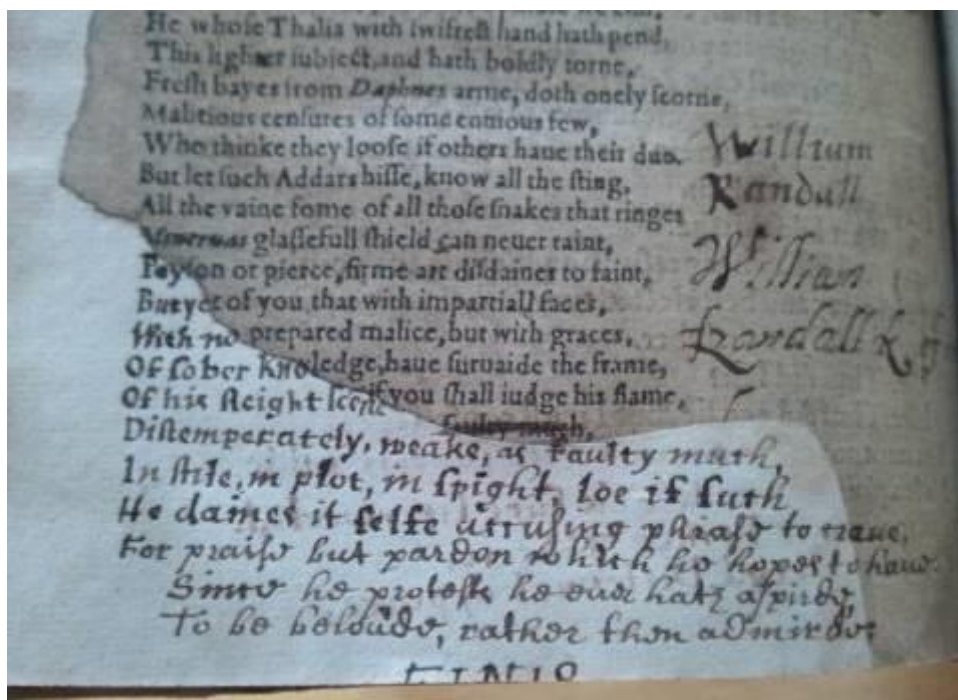 He whoſe Thalia with ſwifteſt hand hath pend,
This lighter ſubiect, and hath boldly torne,
Freſh bayes from Daphnes arme, doth onely ſcorne,
Malitious cenſures of ſome enuious few,
Who thinke they looſe if others haue their due.
But let ſuch Addars hiſſe, know all the ſting,
All the vaine fome of all thoſe ſnakes that ringes
Mineruas glaſſefull ſhield can neuer taint,
Poyſon or pierce, firme art diſdaines to faint,
But yet of you that with impartiall faces,
With no prepared malice, but with graces,
Of ſober knowledge, haue ſuruaide the frame,
Of his ſleight ſcene, if you ſhall iudge his flame,
Diſtemperately, weake, as faulty much,
In ſtile, in plot, in ſpight, loe if ſuch
He daines it ſelfe accuſing phraſe to craue,
For praiſe but pardon which he hopes to haue.
Since he proteſts he euer hath aſpirde,
To be beloude, rather then admirde:
FINIS
William
Randall
William
Randall